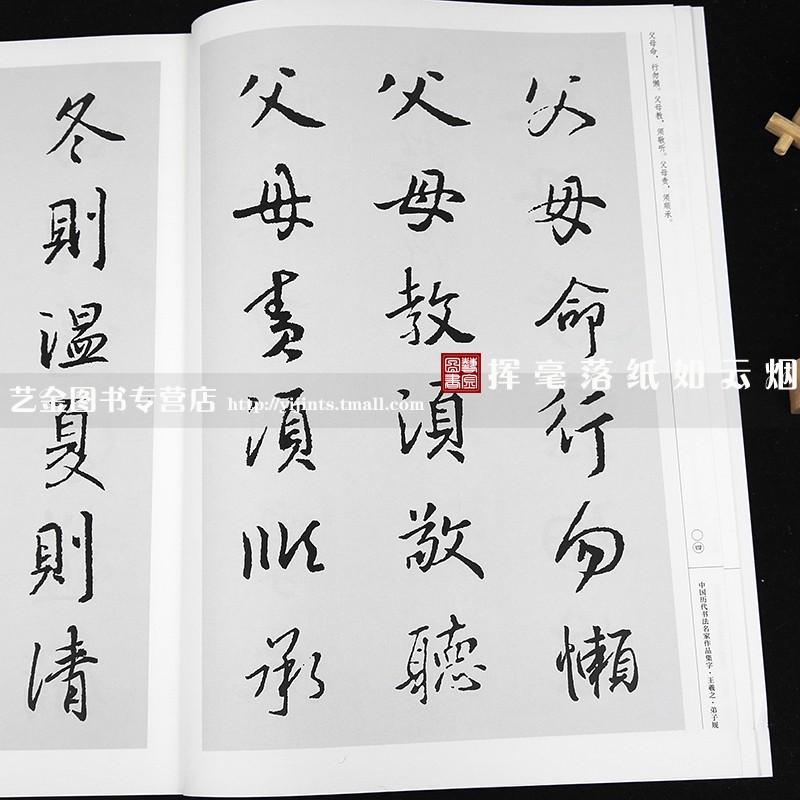 父母命行勿懶
父母教須敬聽
父母責須順承
冬則溫夏則清
父母命，行勿懒。父母教，须敬听。父母责，须顺承。
〇四
中国历代书法名家作品集字·王羲之·弟子规
藝宗圖書
挥毫落纸如云烟
艺金图书专营店 http://yjfints.tmall.com